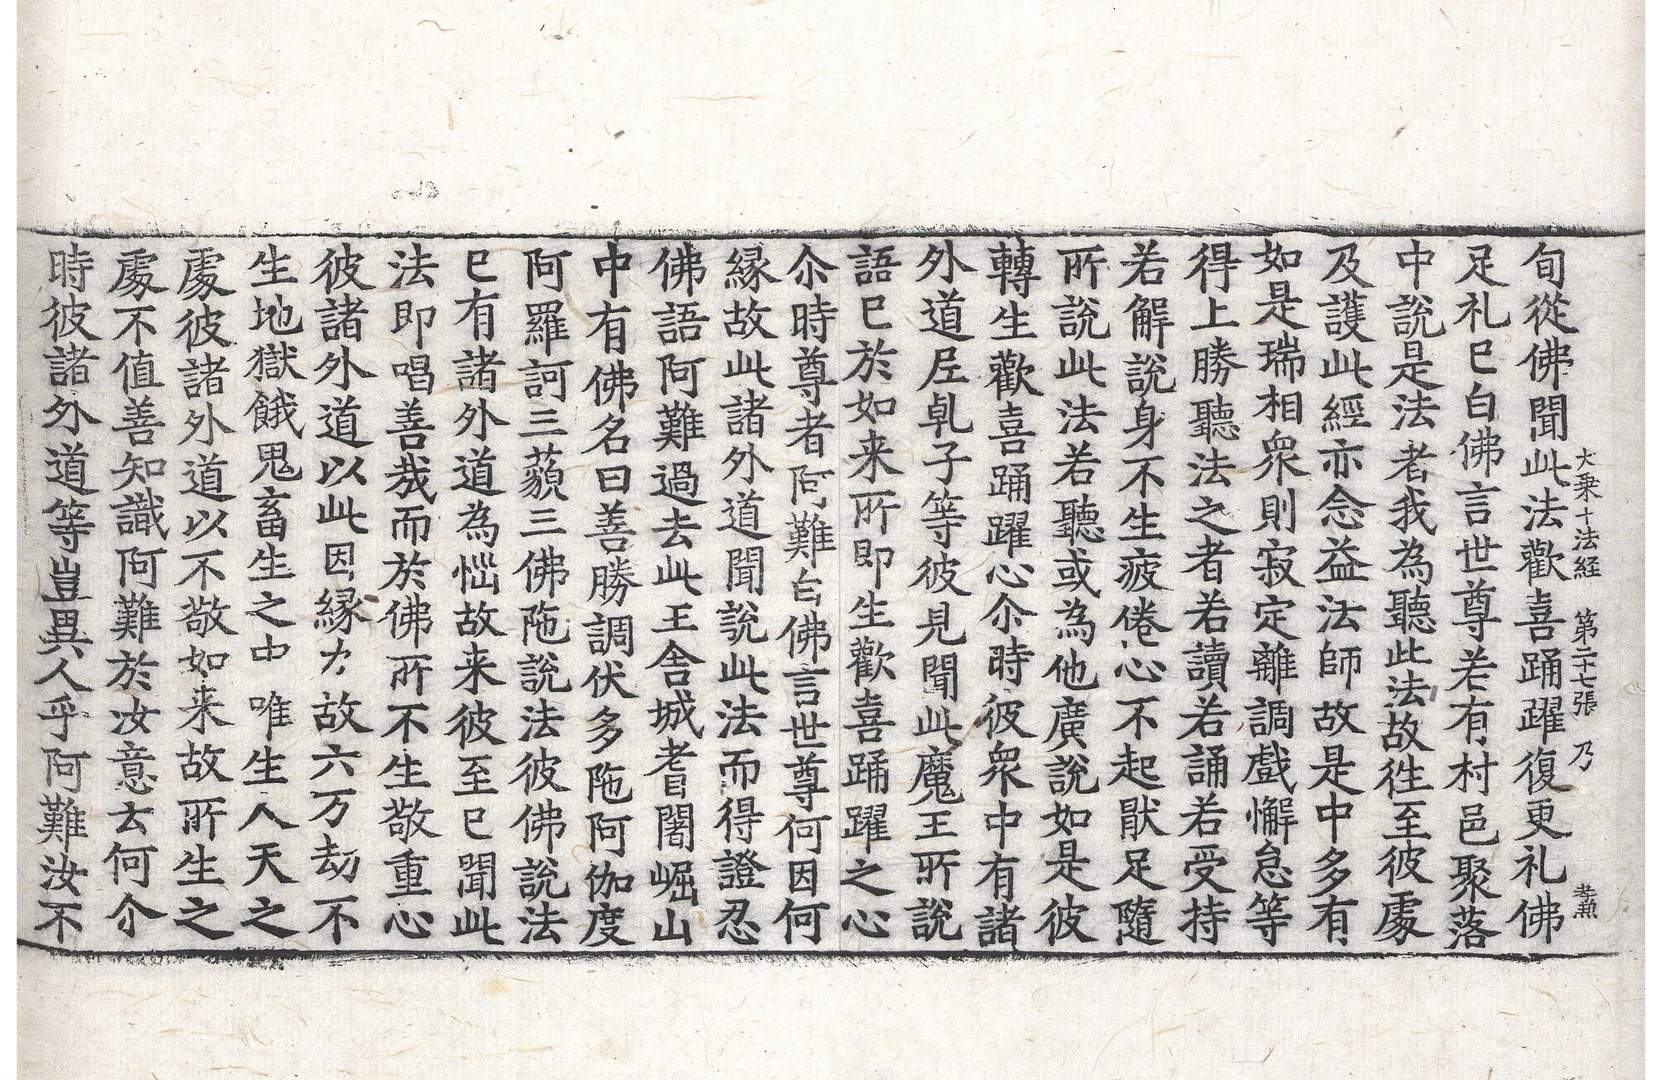 大乗十法経 第二十七張 乃 孝黑
旬從佛聞此法歡喜踊躍復更礼佛
足礼已白佛言世尊若有村邑聚落
中說是法者我為聽此法故徃至彼處
及護此經亦念益法師故是中多有
如是瑞相衆則寂定離調戲懈怠等
得上勝聽法之者若讀若誦若受持
若解說身不生疲倦心不起猒足隨
所說此法若聽或為他廣說如是彼
轉生歡喜踊躍心尒時彼衆中有諸
外道尼乹子等彼見聞此魔王所說
語已於如来所即生歡喜踊躍之心
尒時尊者阿難白佛言世尊何因何
縁故此諸外道聞說此法而得證忍
佛語阿難過去此王舍城耆闍崛山
中有佛名曰善勝調伏多陁阿伽度
阿羅訶三藐三佛陁說法彼佛說法
已有諸外道為惱故来彼至已聞此
法即唱善哉而於佛所不生敬重心
彼諸外道以此因縁力故六万劫不
生地獄餓鬼畜生之中唯生人天之
處彼諸外道以不敬如来故所生之
處不值善知識阿難於汝意云何尒
時彼諸外道等豈異人乎阿難汝不